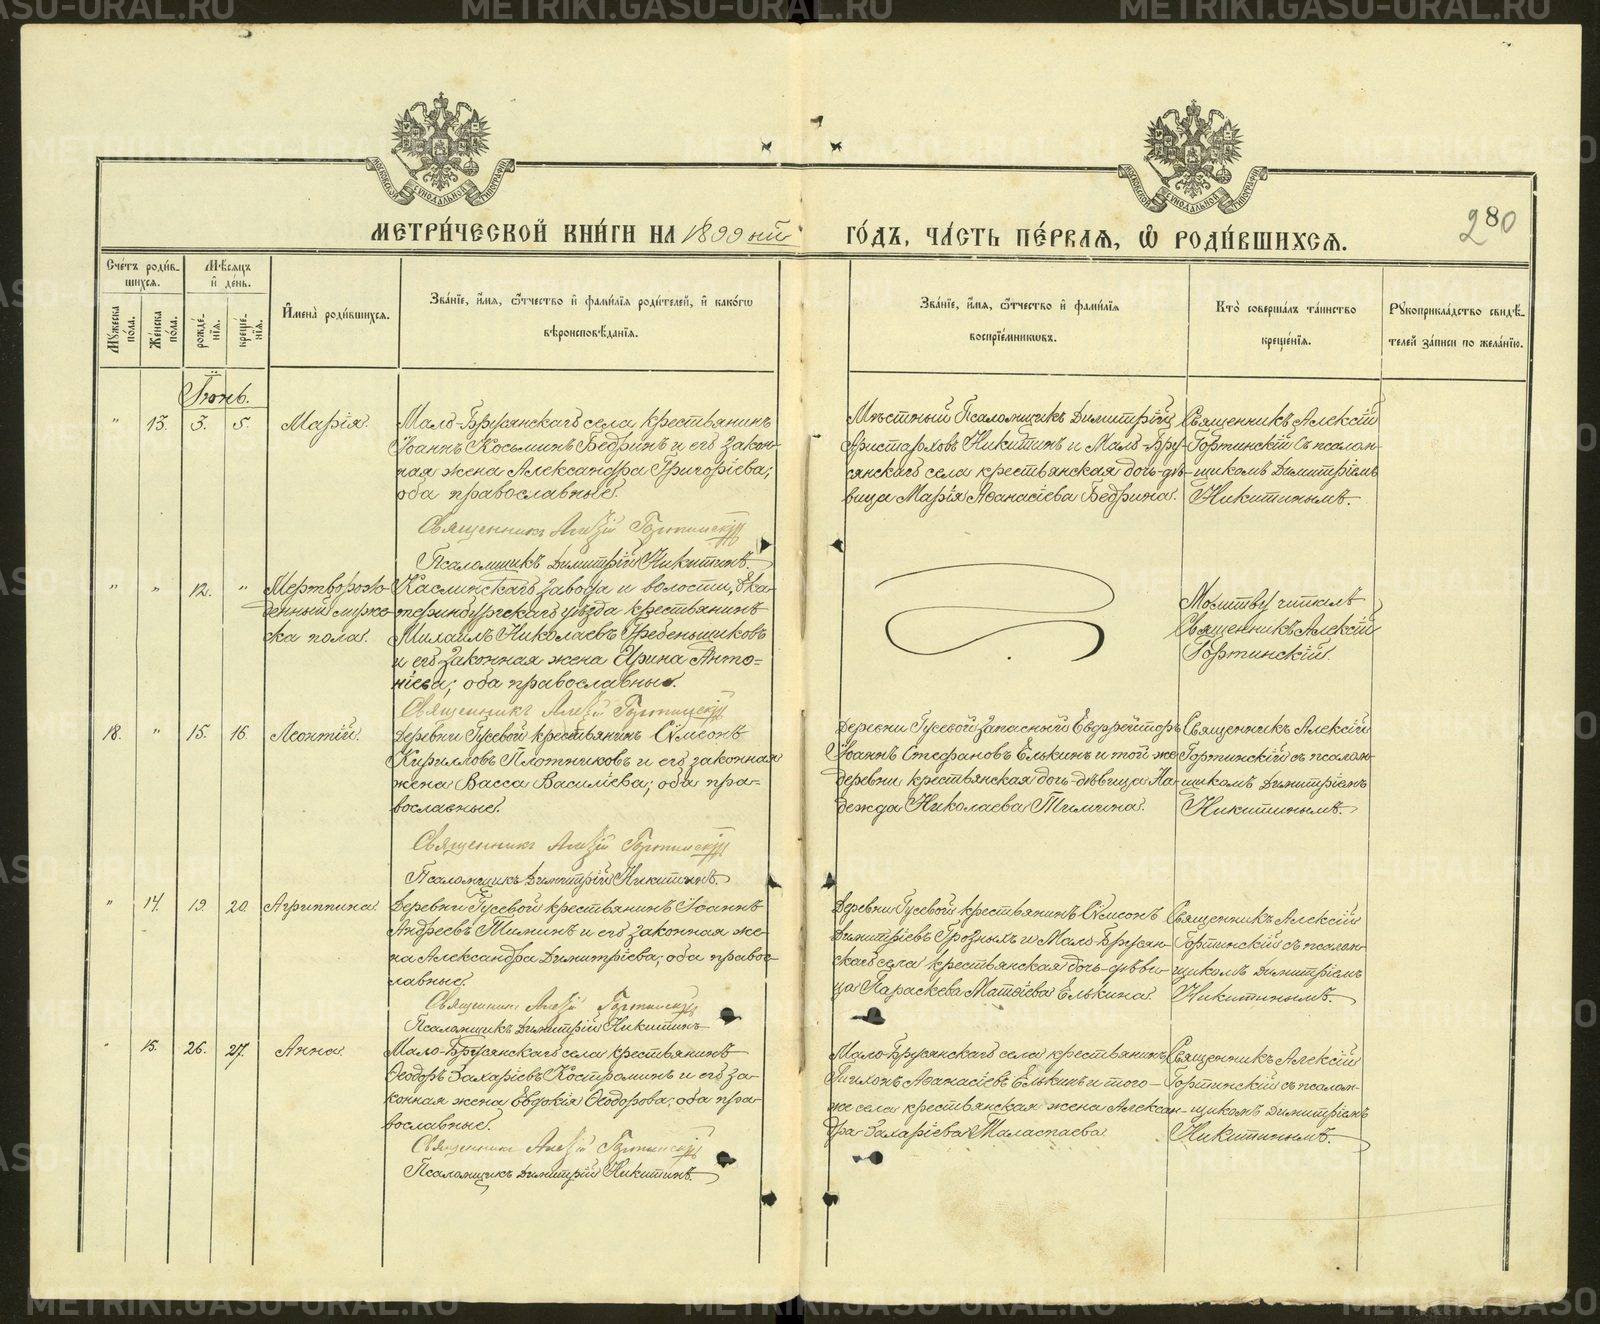 METRIKI.GASU-URAL.RU
МОСКОВСКОЙ СѴНОДАЛЬНОЙ ТИПОГРАФІИ
МОСКОВСКОЙ СѴНОДАЛЬНОЙ ТИПОГРАФІИ
МЕТРИ́ЧЕСКОЙ КНИ́ГИ НА 1899 ый ГО́ДЪ, ЧА́СТЬ ПЕ́РВАѦ, Ѡ҆ РОДИ́ВШИХСѦ.
280
Сче́тъ роди́в-
шихсѧ.
Мꙋ́жеска по́ла.
Же́нска по́ла.
Мѣ́сѧцъ
и҆ де́нь.
рожде́-
нїѧ.
креще́-
нїѧ.
И҆мена̀ роди́вшихсѧ.
Зва́нїе, и҆́мѧ, ѻ҆́тчество и҆ фами́лїѧ роди́телей, и҆ како́гѡ
вѣроисповѣ́данїѧ.
Зва́нїе, и҆́мѧ, ѻ҆́тчество и҆ фами́лїѧ
воспрїе́мникѡвъ.
Кто̀ соверша́лъ та́инство
креще́нїѧ.
Рꙋкоприкла́дство свидѣ́-
телей за́писи по жела́нїю.
Іюнь.
" 13. 3. 5. Марія.
Мало-Брусянскаго села крестьянинъ
Іоаннъ Косьминъ Бедринъ и его закон-
ная жена Александра Григоріева;
оба православные.
Священникъ Алексій Гортинскій
Псаломщикъ Димитрій Никитинъ.
Мѣстный Псаломщикъ Димитрій
Аристарховъ Никитинъ и Мало-Бру-
сянскаго села крестьянская дочь-дѣ-
вица Марія Аѳанасіева Бедрина.
Священникъ Алексій
Гортинскій съ псалом-
щикомъ Димитріемъ
Никитинымъ.
" " 12. " Мертворож-
денный муже-
ска пола.
Каслинскаго завода и волости, Ека-
теринбургскаго уѣзда крестьянинъ
Михаилъ Николаевъ Гребенщиковъ
и его законная жена Ирина Анто-
ніева; оба православные.
Священникъ Алексій Гортинскій
Молитву читалъ
Священникъ Алексій
Гортинскій.
18. " 15. 16. Леонтій.
Деревни Гусевой крестьянинъ Сѵмеонъ
Кирилловъ Плотниковъ и его законная
жена Васса Василіева; оба пра-
вославные.
Священникъ Алексій Гортинскій
Псаломщикъ Димитрій Никитинъ.
Деревни Гусевой запасный Ефрейторъ
Іоаннъ Стефановъ Елькинъ и той же
деревни крестьянская дочь-дѣвица На-
дежда Николаева Тимина.
Священникъ Алексій
Гортинскій съ псалом-
щикомъ Димитріемъ
Никитинымъ.
" 14. 19. 20. Агриппина.
Деревни Гусевой крестьянинъ Іоаннъ
Андреевъ Тиминъ и его законная же-
на Александра Димитріева; оба правос-
лавные.
Священникъ Алексій Гортинскій
Псаломщикъ Димитрій Никитинъ
Деревни Гусевой крестьянинъ Сѵмеонъ
Димитріевъ Грозныхъ и Мало-Брусян-
скаго села крестьянская дочь-дѣви-
ца Параскева Матѳіева Елькина.
Священникъ Алексій
Гортинскій съ псалом-
щикомъ Димитріемъ
Никитинымъ.
" 15. 26. 27. Анна.
Мало-Брусянскаго села крестьянинъ
Ѳеодоръ Захаріевъ Костроминъ и его за-
конная жена Евдокія Ѳеодорова; оба пра-
вославные.
Священникъ Алексій Гортинскій
Псаломщикъ Димитрій Никитинъ.
Мало-Брусянскаго села крестьянинъ
Аѳанасіевъ Елькинъ и того-
же села крестьянская жена Алексан-
дра Захаріева
Священникъ Алексій
Гортинскій съ псалом-
щикомъ Димитріемъ
Никитинымъ.